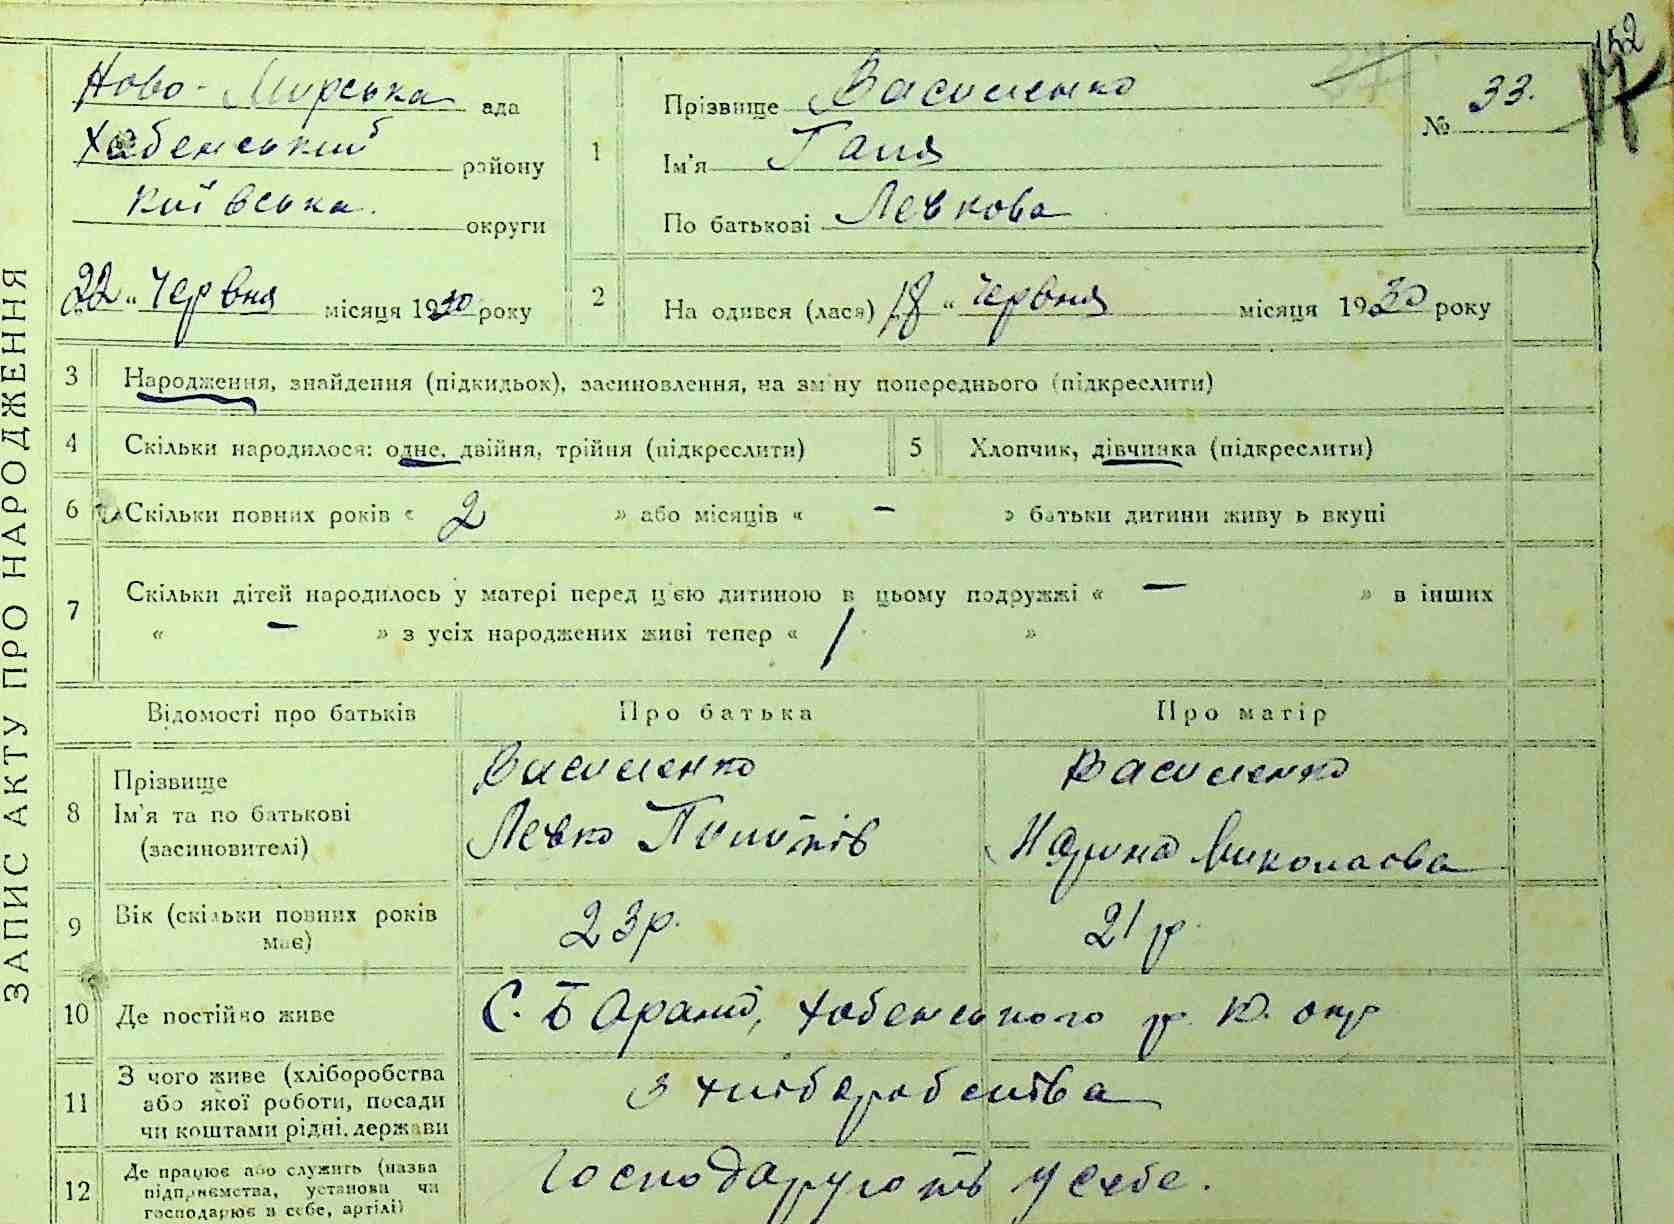 152
ЗАПИС АКТУ ПРО НАРОДЖЕННЯ
Ново-Мирська ада
Хабенський району
Київська округи
22 " Червня місяця 1930 року
1
Прізвище Василенко
Ім'я Ганя
По батькові Левкова
№ 33.
2
На одився (лася) "18" Червня місяця 1930 року
3 Народження, знайдення (підкидьок), засиновлення, на зміну попереднього (підкреслити)
4 Скільки народилося: одне, двійня, трійня (підкреслити) 5 Хлопчик, дівчинка (підкреслити)
6 Скільки повних років « 2 » або місяців « – » батьки дитини живу ь вкупі
7 Скільки дітей народилось у матері перед цією дитиною в цьому подружжі « – » в інших
« – » з усіх народжених живі тепер « 1 »
Відомості про батьків Про батька Про матір
8 Прізвище Василенко Василенко
Ім'я та по батькові Левко Пилипів Марина Миколаєва
(засиновителі)
9 Вік (скільки повних років має) 23 р. 21 р.
10 Де постійно живе С. Бараннѣ, Хабенського р. К. окр
11 З чого живе (хліборобства
або якої роботи, посади
чи коштами рідні, держави
З хліборобства
12 Де працює або служить (назва
підприємства, установи чи
господарює в себе, артілі)
Господарують у себе.